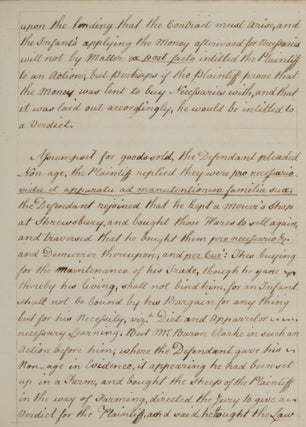 upon the lending that the Contract must arise, and
the Infant's applying the Money afterward for Necessaries
will not by Matter ex post facto intitled the Plaintiff
to an Action; but perhaps if the plaintiff prove that
the Money was lent to buy Necessaries with, and that
it was laid out accordingly, he would be intitled to
a Verdict.
Assumpsit for goods sold, the Defendant pleaded
Non-age, the Plaintiff replied they were pro necessario
victu et apparatu ad manutentionem familiæ suæ;
the Defendant rejoined that he kept a Mercer's Shop
at Shrewsbury, and bought those Wares to sell again,
and traversed that he bought them pro necessario &c.
and Demurrer thereupon, and per Cur: This buying
for the Maintenance of his Trade, though he gain
thereby his Living, shall not bind him, for an Infant
shall not be bound by his Bargain for any thing
but for his Necessity, vizt. Diet and Apparel or
necessary Learning. But Mr. Baron Clarke in such an
Action before him, where the Defendant gave his
Non-age in Evidence, it appearing he had been set
up in a Farm, and bought the Sheep of the Plaintiff
in the way of Farming, directed the Jury to give a
Verdict for the Plaintiff, and said he thought the Law